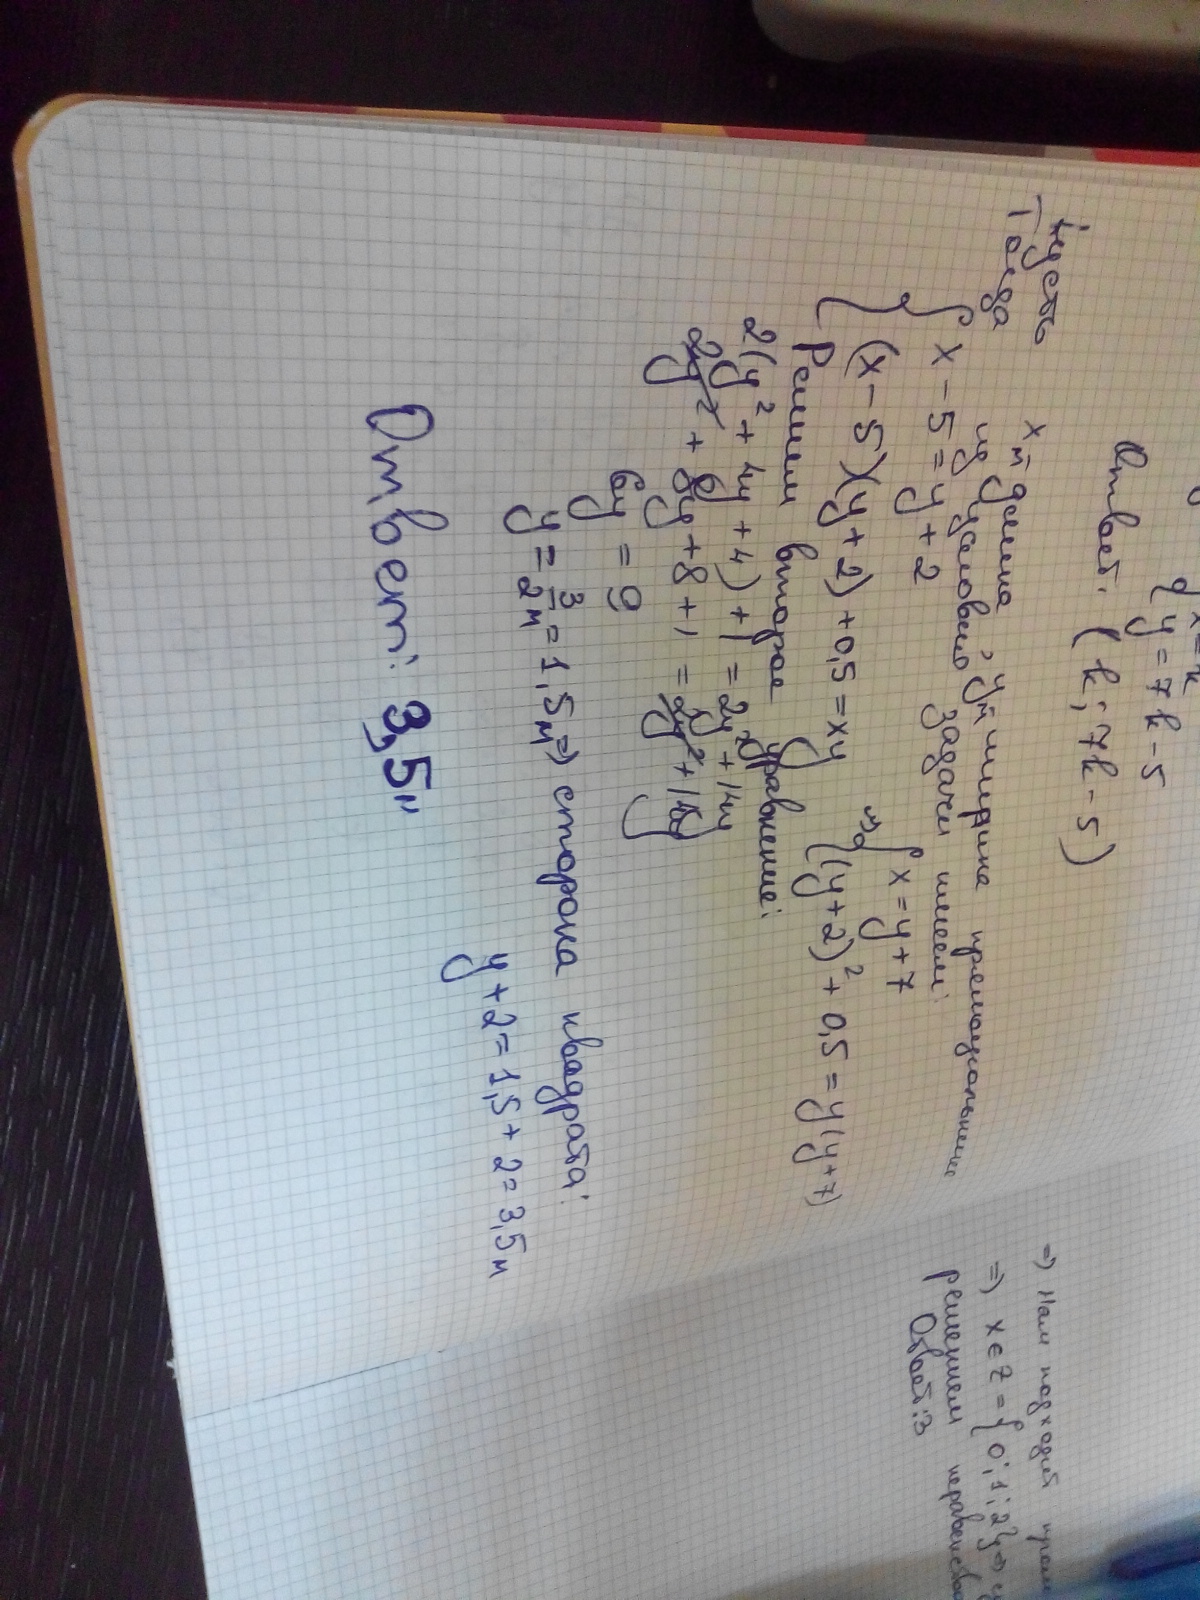 x = k
y = 7k - 5
Ответ: (k; 7k - 5)
Пусть x м длина, y м ширина прямоугольника
Тогда из условия задачи имеем:
{ x - 5 = y + 2
(x - 5)(y + 2) + 0,5 = xy
=> { x = y + 7
(y + 2)² + 0,5 = y(y + 7)
Решим второе уравнение:
2(y² + 4y + 4) + 1 = 2y² + 14y
2y² + 8y + 8 + 1 = 2y² + 14y
6y = 9
y = 3/2 м = 1,5 м => сторона квадрата:
y + 2 = 1,5 + 2 = 3,5 м
Ответ: 3,5 м
=> Нам подходят
=> x ∈ Z = {0; 1; 2} =>
решением
Ответ: 3